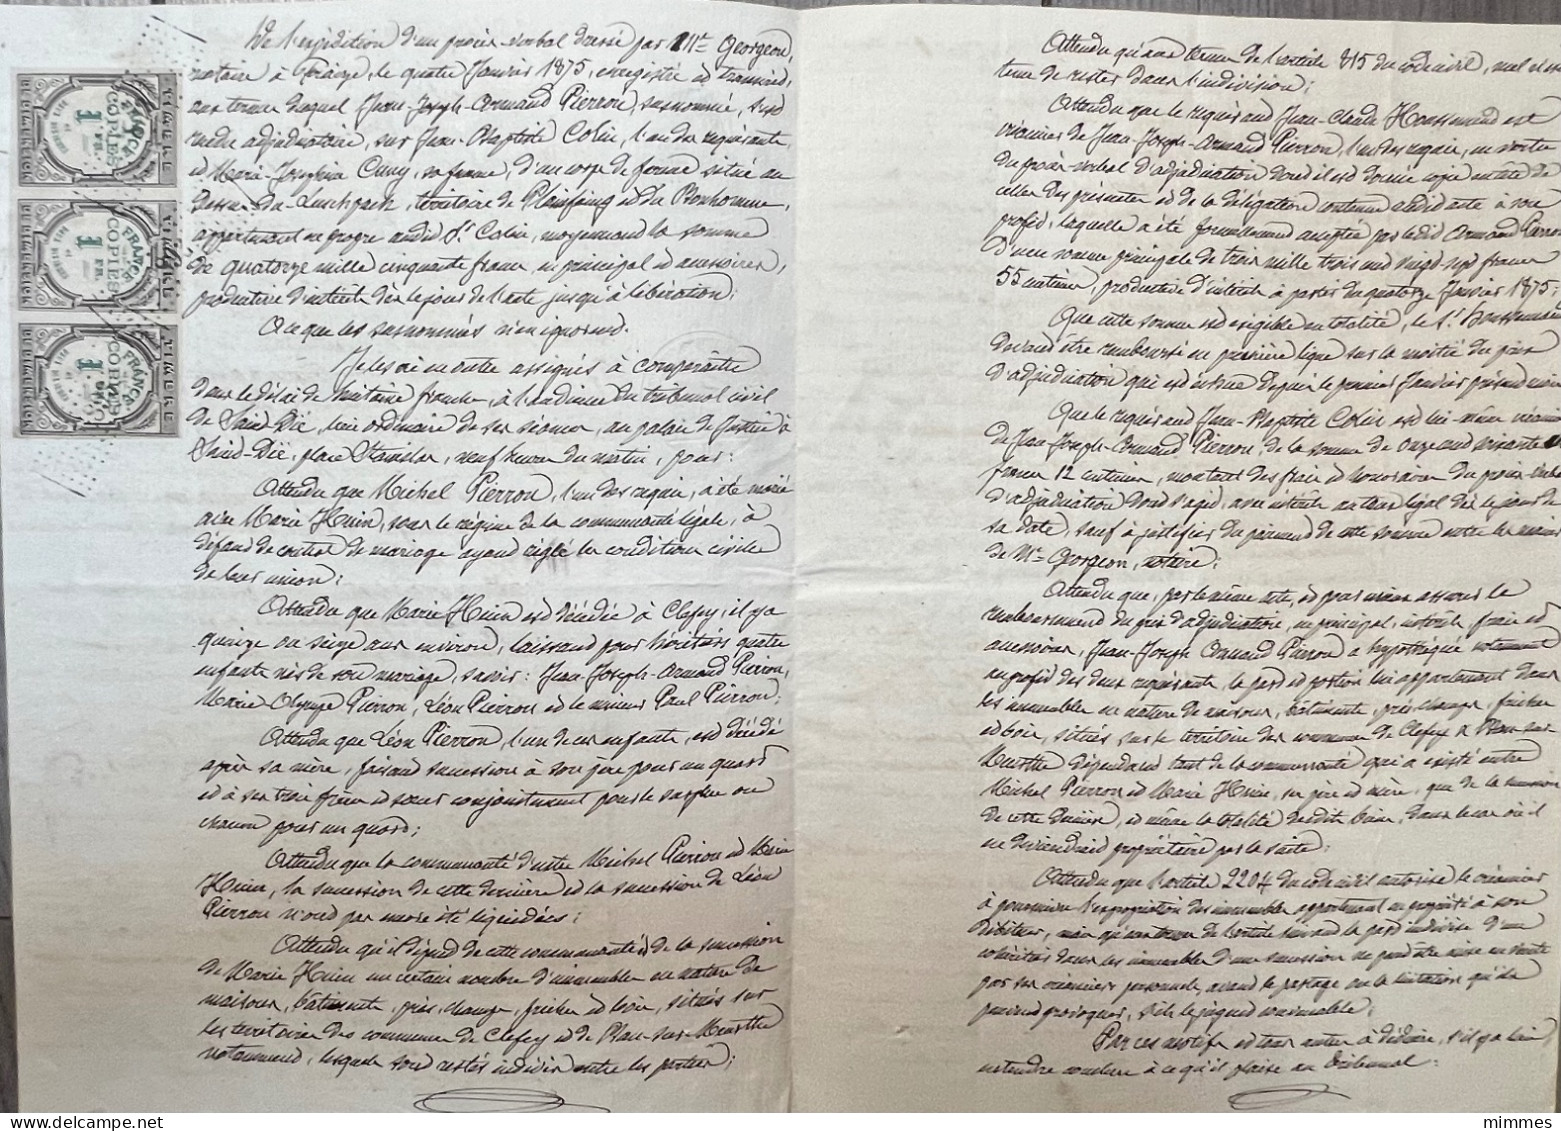 De l'expédition d'un procès-verbal dressé par Me Georgeon,
notaire à Fraize, le quatre Janvier 1875, enregistrée et transcrit,
aux termes duquel Jean-Joseph-Armand Pierron, susnommé, s'est
rendu adjudicataire, sur Jean-Baptiste Colin, l'un des requérants,
et Marie-Joséphine Cuny, sa femme, d'un corps de ferme situé au
dessus du-Luschpach, territoire de Plainfaing et du Bonhomme,
appartenant en propre audit Sr Colin, moyennant la somme
de quatorze mille cinquante francs, en principal et accessoires,
productive d'intérêts dès le jour de l'acte jusqu'à libération;
A ce que les susnommés n'en ignorent.
Je les ai en outre assignés à comparaître
dans le délai de huitaine franche, à l'audience du tribunal civil
de Saint-Dié, lieu ordinaire de ses séances, au palais de Justice à
Saint-Dié, place Stanislas, neuf heures du matin, pour:
Attendu que Michel Pierron, l'un des requis, a été marié
avec Marie Huin, sous le régime de la communauté légale, à
défaut de contrat de mariage ayant réglé les conditions civiles
de leur union;
Attendu que Marie Huin est décédée à Clefcy, il y a
quinze ou seize ans environ, laissant pour héritiers quatre
enfants nés de son mariage, savoir: Jean-Joseph-Armand Pierron,
Marie Olympe Pierron, Léon Pierron et le mineur Paul Pierron;
Attendu que Léon Pierron, l'un de ces enfants, est décédé
après sa mère, faisant succession à son père pour un quart
et à ses trois frères et sœurs conjointement pour le surplus ou
chacun pour un quart;
Attendu que la communauté d'entre Michel Pierron et Marie
Huin, la succession de cette dernière et la succession de Léon
Pierron n'ont pas encore été liquidées;
Attendu qu'il dépend de cette communauté et de la succession
de Marie Huin un certain nombre d'immeubles en nature de
maisons, bâtiments, prés, champs, friches et bois, situés sur
les territoires des communes de Clefcy et de Ban-sur-Meurthe
notamment, lesquels sont restés indivis entre les parties;
FRANCE
COPIES
1 FR.
FRANCE
COPIES
1 FR.
FRANCE
COPIES
1
Attendu qu'aux termes de l'article 815 du code civil, nul n'est
tenu de rester dans l'indivision;
Attendu que le requérant Jean-Claude Houssemand est
créancier de Jean-Joseph-Armand Pierron, l'un des requis, en vertu
du procès-verbal d'adjudication dont il est donné copie en tête de
celle des présentes et de la délégation contenue audit acte à son
profit, laquelle a été formellement acceptée par ledit Armand Pierron
d'une somme principale de trois mille trois cent vingt-sept francs
55 centimes, productive d'intérêts à partir du quatorze Janvier 1875;
Que cette somme est exigible en totalité, le Sr Houssemand
devant être remboursé en première ligne sur la moitié du prix
d'adjudication qui est échue depuis le premier Janvier présent mois
Que le requérant Jean-Baptiste Colin est lui-même créancier
de Jean-Joseph-Armand Pierron, de la somme de onze cent soixante
francs 12 centimes, montant des frais et honoraires du procès-verbal
d'adjudication dont s'agit, avec intérêts au taux légal dès le jour de
sa date, sauf à justifier du paiement de cette somme entre les mains
de Me Georgeon, notaire;
Attendu que, par le même acte, et pour mieux assurer le
remboursement du prix d'adjudication, en principal, intérêts, frais et
accessoires, Jean-Joseph Armand Pierron a hypothéqué notamment
au profit des deux requérants, la part et portion lui appartenant dans
les immeubles en nature de maisons, bâtiments, prés, champs, friches
et bois, situés sur le territoire des communes de Clefcy & Ban-sur-
Meurthe dépendant tant de la communauté qui a existé entre
Michel Pierron et Marie Huin, ses père et mère, que de la succession
de cette dernière, et même la totalité desdits biens, dans le cas où il
en deviendrait propriétaire par la suite;
Attendu que l'article 2204 du code civil autorise le créancier
à poursuivre l'expropriation des immeubles appartenant en propriété à son
débiteur, mais qu'aux termes de l'article suivant la part indivise d'un
cohéritier dans les immeubles d'une succession ne peut être mise en vente
par ses créanciers personnels, avant le partage ou la licitation qu'ils
peuvent provoquer, s'ils le jugent convenable;
Par ces motifs et tous autres à déduire, s'il y a lieu,
entendre conclure à ce qu'il plaise au Tribunal:
www.delcampe.net
mimmes